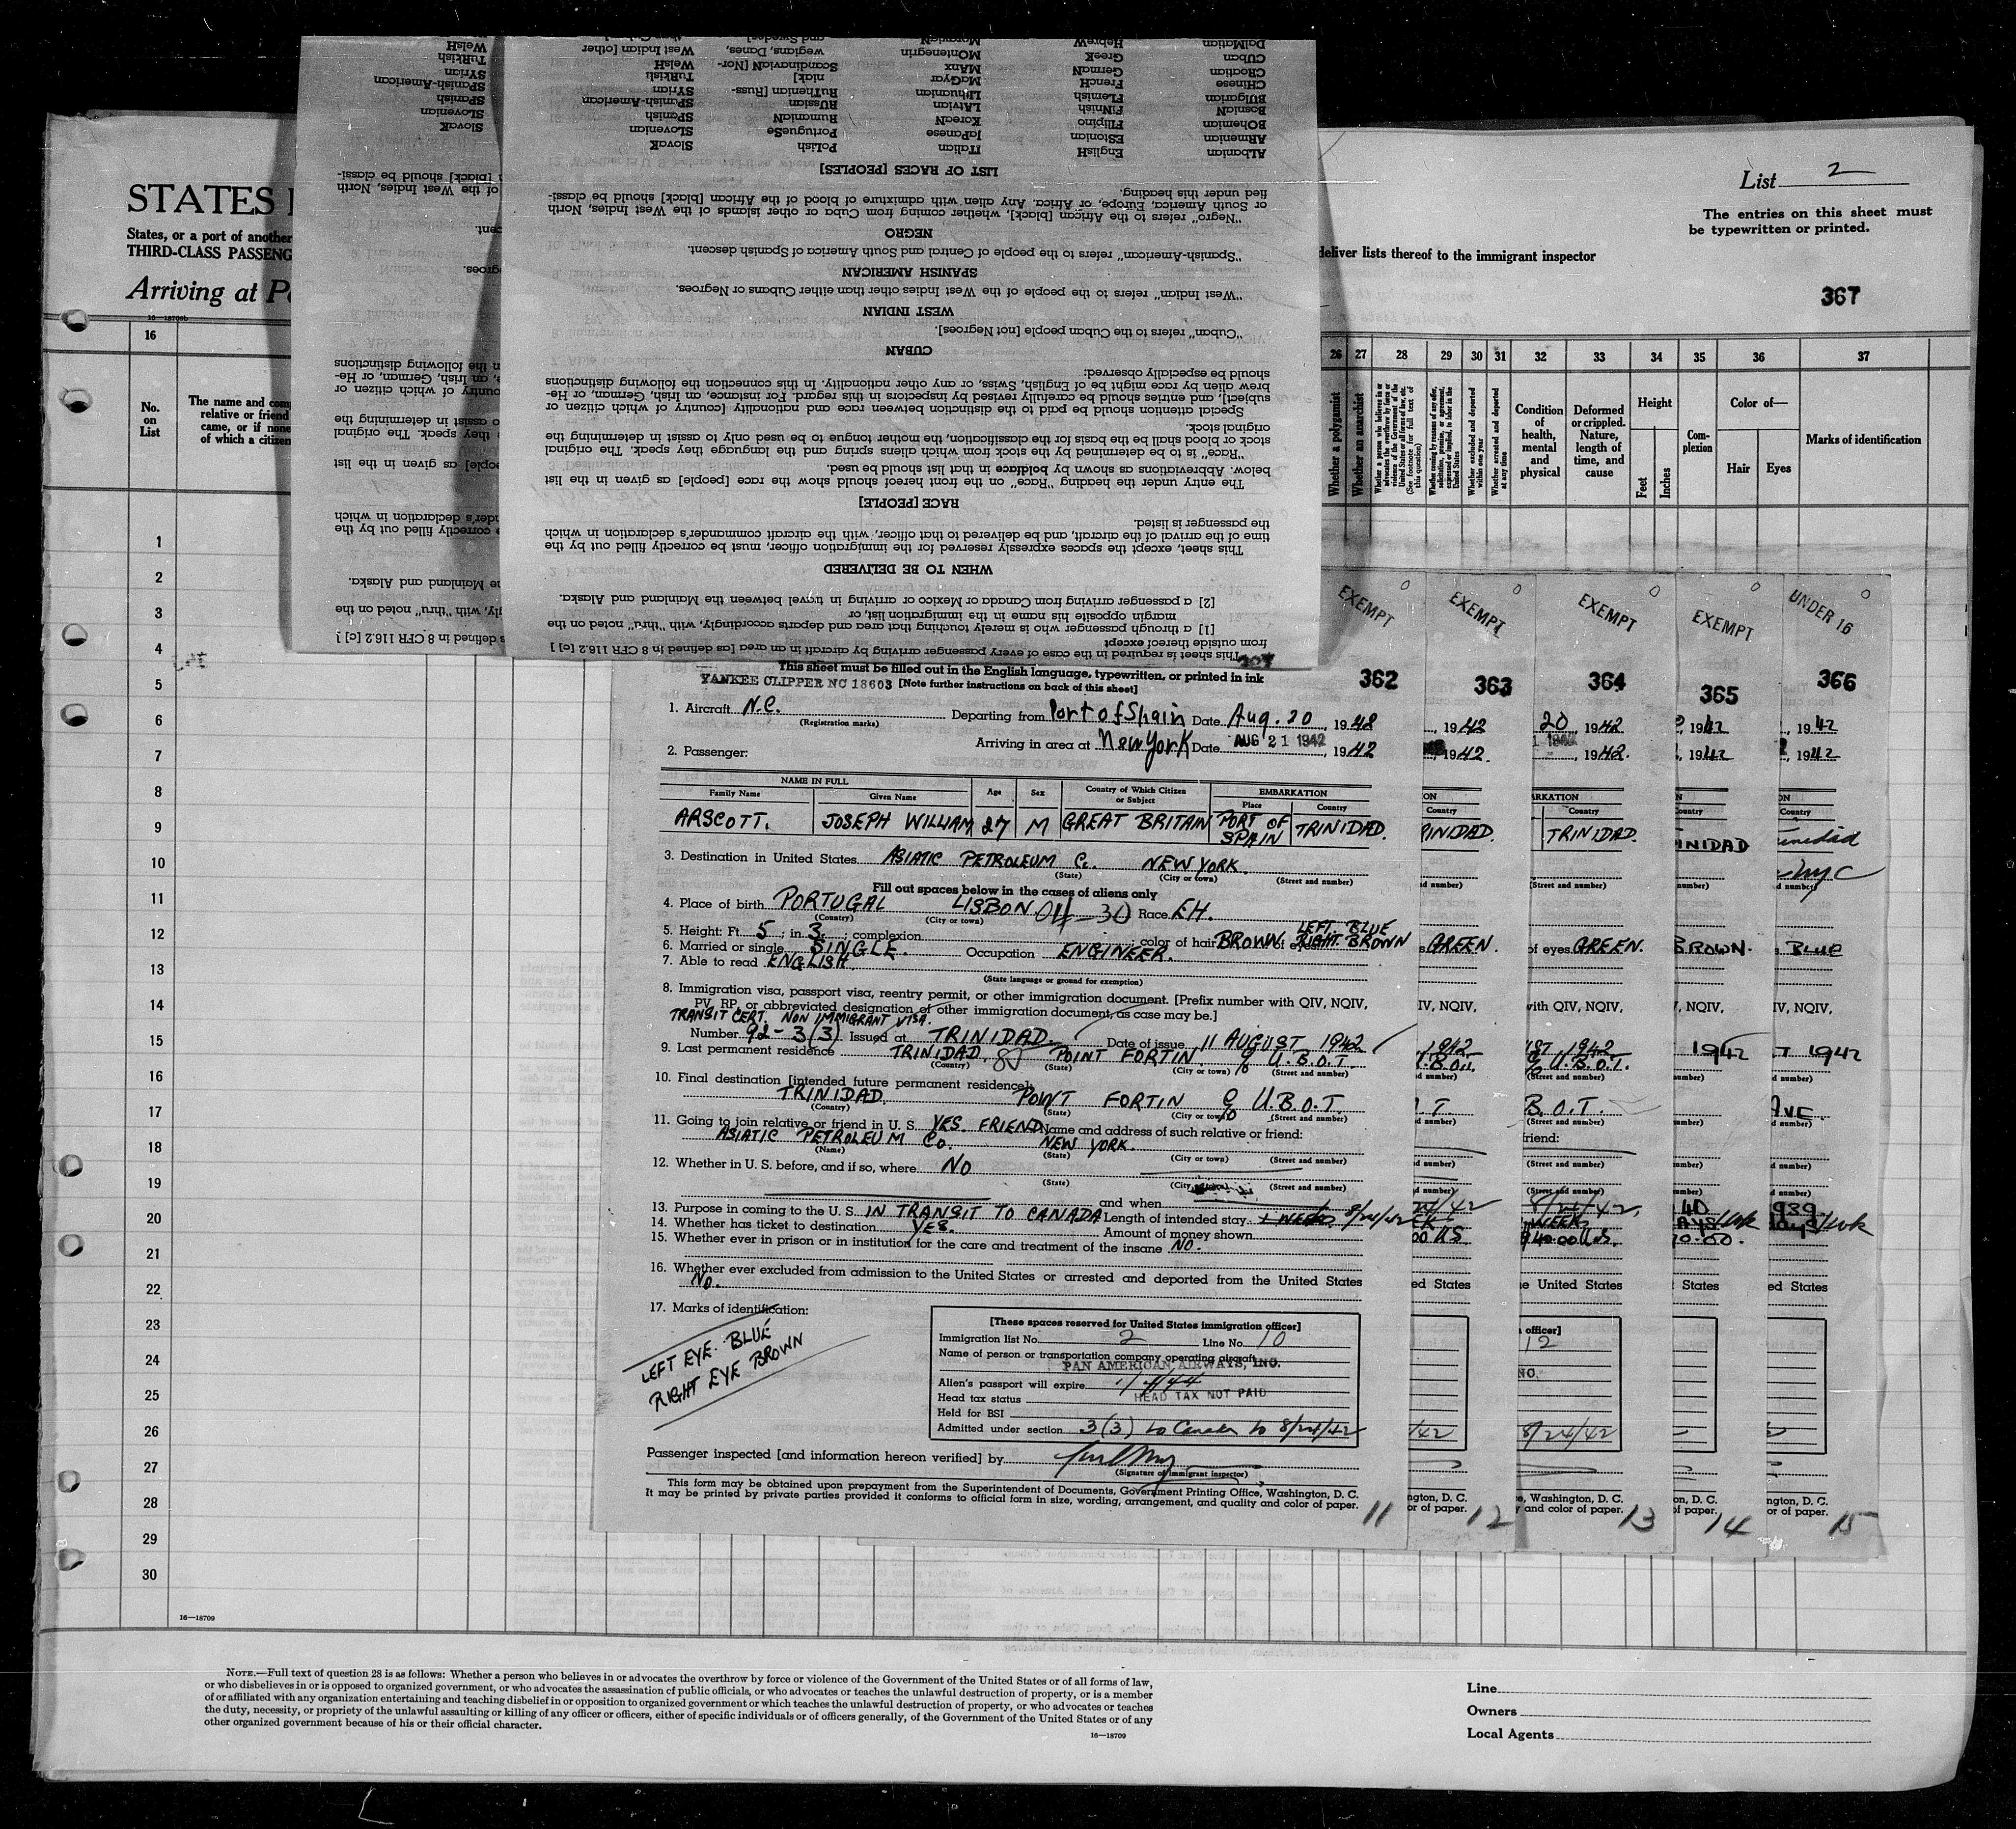 STATES
States, or a port of another
THIRD-CLASS PASSENG
Arriving at
16—18709b
deliver lists thereof to the immigrant inspector
List 2
The entries on this sheet must
be typewritten or printed.
367
16
No.
on
List
The name and com
relative or friend
came, or if none
of which a citizen
26 27 28 29 30 31 32 33 34 35 36 37
Whether a polygamist
Whether an anarchist
Whether excluded and deported within one year
Whether arrested and deported at any time
Condition
of
health,
mental
and
physical
Deformed
or crippled.
Nature,
length of
time, and
cause
Height
Feet
Inches
Com-
plexion
Color of—
Hair
Eyes
Marks of identification
1
2
3
4
5
6
7
8
9
10
11
12
13
14
15
16
17
18
19
20
21
22
23
24
25
26
27
28
29
30
16—18709
This sheet is required in the case of every passenger arriving by aircraft in an area [as defined in 8 CFR 116.2 [c] ]
from outside thereof except
[1] a through passenger who is merely touching that area and departs accordingly, with "thru" noted on the
margin opposite his name in the immigration list, or
[2] a passenger arriving from Canada or Mexico or arriving in travel between the Mainland and Alaska.
WHEN TO BE DELIVERED
This sheet, except the spaces expressly reserved for the immigration officer, must be correctly filled out by the
time of the arrival of the aircraft, and be delivered to that officer, with the aircraft commander's declaration in which
the passenger is listed.
RACE [PEOPLE]
The entry under the heading "Race" on the front hereof should show the race [people] as given in the list
below. Abbreviations as shown by boldface in that list should be used.
"Race" is to be determined by the stock from which aliens spring and the language they speak. The original
stock or blood shall be the basis for the classification, the mother tongue to be used only to assist in determining the
original stock.
Special attention should be paid to the distinction between race and nationality [country of which citizen or
subject], and entries should be carefully revised by inspectors in this regard. For instance, an Irish, German, or He-
brew alien by race might be of English, Swiss, or any other nationality. In this connection the following distinctions
should be especially observed:
CUBAN
"Cuban" refers to the Cuban people [not Negroes].
WEST INDIAN
"West Indian" refers to the people of the West Indies other than either Cubans or Negroes.
SPANISH AMERICAN
"Spanish-American" refers to the people of Central and South America of Spanish descent.
NEGRO
"Negro" refers to the African [black], whether coming from Cuba or other islands of the West Indies, North
or South America, Europe, or Africa. Any alien with admixture of blood of the African [black] should be classi-
fied under this heading.
LIST OF RACES [PEOPLES]
AlBanian EnglisH ITalian PoLish SlovaK
ARmenian EStonian JaPanese PortugueSe SLovenian
BOhemian Filipino KoreaN RumaniaN SPanish
BosniaN FiNnish LAtvian RUssian SPanish-American
BUlgarian FLemish LIthuanian RuThenian [Russ- SYrian
CHinese FrencH MaGyar niak] TuRkish
CRoatian GermaN MAnx ScandinaviaN [Nor- WelsH
CUban GreeK MOntenegrin wegians, Danes, West Indian [other
DalMatian HebreW MoraviaN and Swedes]
This sheet must be filled out in the English language, typewritten, or printed in ink
YANKEE CLIPPER NC 18603 [Note further instructions on back of this sheet]
362
1. Aircraft N.C. Departing from Port of Spain Date Aug. 20, 1942
(Registration marks)
Arriving in area at New York Date AUG 21 1942, 1942
2. Passenger:
NAME IN FULL
Family Name Given Name Age Sex Country of Which Citizen or Subject EMBARKATION Place Country
ARSCOTT. JOSEPH WILLIAM 27 M GREAT BRITAIN PORT OF SPAIN TRINIDAD.
3. Destination in United States ASIATIC PETROLEUM Co. NEW YORK.
(State) (City or town) (Street and number)
Fill out spaces below in the cases of aliens only
4. Place of birth PORTUGAL LISBON Race EH.
(Country) (City or town)
5. Height: Ft. 5; in. 3; complexion color of hair BROWN of eyes LEFT. BLUE RIGHT. BROWN
6. Married or single SINGLE. Occupation ENGINEER.
7. Able to read ENGLISH.
(State language or ground for exemption)
8. Immigration visa, passport visa, reentry permit, or other immigration document. [Prefix number with QIV, NQIV,
PV, RP, or abbreviated designation of other immigration document, as case may be.]
TRANSIT CERT. NON IMMIGRANT VISA.
Number 92-3(3) Issued at TRINIDAD Date of issue 11 AUGUST 1942
9. Last permanent residence TRINIDAD. POINT FORTIN c/o U.B.O.T.
(Country) (State) (City or town) (Street and number)
10. Final destination [intended future permanent residence]:
TRINIDAD POINT FORTIN c/o U.B.O.T.
(Country) (State) (City or town) (Street and number)
11. Going to join relative or friend in U. S. YES. FRIEND Name and address of such relative or friend:
ASIATIC PETROLEUM Co. NEW YORK.
(Name) (State) (City or town) (Street and number)
12. Whether in U. S. before, and if so, where NO
(State) (City (Street and number)
and when
13. Purpose in coming to the U. S. IN TRANSIT TO CANADA Length of intended stay 1 WEEK 8/24/42
14. Whether has ticket to destination YES. Amount of money shown
15. Whether ever in prison or in institution for the care and treatment of the insane NO.
16. Whether ever excluded from admission to the United States or arrested and deported from the United States
NO.
17. Marks of identification:
LEFT EYE. BLUE
RIGHT EYE BROWN
[These spaces reserved for United States immigration officer]
Immigration list No. 2 Line No. 10
Name of person or transportation company operating aircraft
PAN AMERICAN AIRWAYS, INC.
Alien's passport will expire
Head tax status HEAD TAX NOT PAID
Held for BSI
Admitted under section 3(3) to Canada to 8/24/42
Passenger inspected [and information hereon verified] by
(Signature of immigrant inspector)
This form may be obtained upon prepayment from the Superintendent of Documents, Government Printing Office, Washington, D. C.
It may be printed by private parties provided it conforms to official form in size, wording, arrangement, and quality and color of paper.
11
EXEMPT
EXEMPT
363
, 1942
, 1942.
Country
RINIDAD
GREEN.
IV, NQIV,
1942
ed States
12
EXEMPT
364
20, 1942
, 1942.
Country
TRINIDAD.
(Street and number)
of eyes GREEN.
with QIV, NQIV,
1942
U.B.O.T.
(Street and number)
B.O.T.
friend:
(Street and number)
1 WEEK
e United States
officer]
12
8/24/42
e, Washington, D. C.
and color of paper.
13
EXEMPT
365
, 1942
INIDAD
BROWN.
1942
States
14
UNDER 16
366
1942
1942
Country
Trinidad
NYC
BLUE
IV, NQIV,
1942
Ave.
ed States
ngton, D. C.
or of paper.
15
NOTE.—Full text of question 28 is as follows: Whether a person who believes in or advocates the overthrow by force or violence of the Government of the United States or of all forms of law,
or who disbelieves in or is opposed to organized government, or who advocates the assassination of public officials, or who advocates or teaches the unlawful destruction of property, or is a member
of or affiliated with any organization entertaining and teaching disbelief in or opposition to organized government or which teaches the unlawful destruction of property, or who advocates or teaches
the duty, necessity, or propriety of the unlawful assaulting or killing of any officer or officers, either of specific individuals or of officers generally, of the Government of the United States or of any
other organized government because of his or their official character.
16—18709
Line
Owners
Local Agents